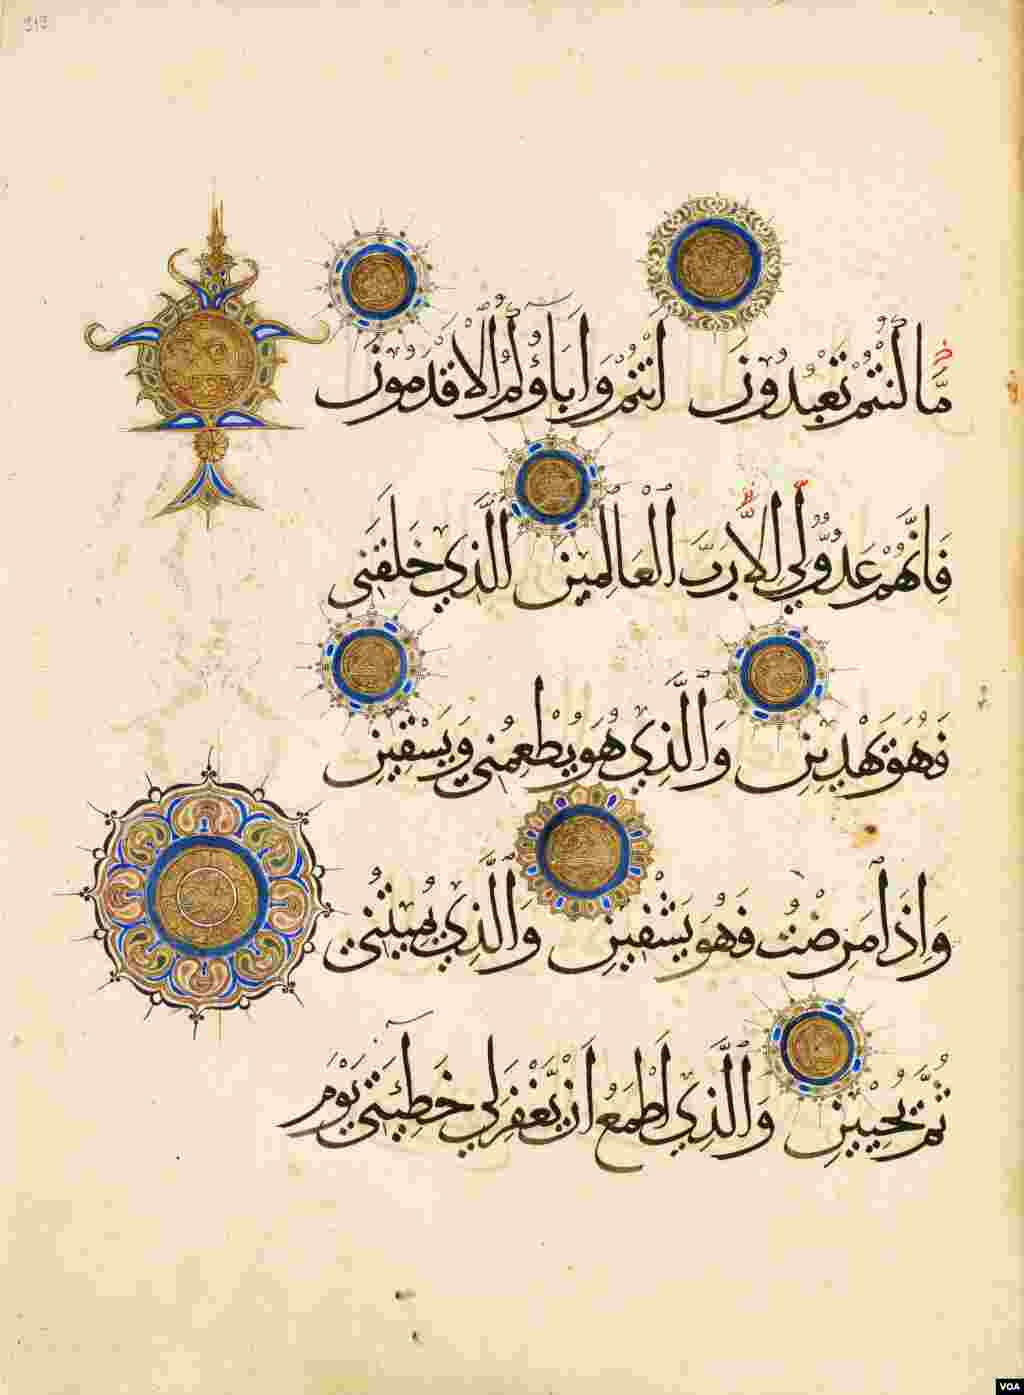 مَّا كُنْتُمْ تَعْبُدُونَ أَنْتُمْ وَآبَاؤُكُمُ الْأَقْدَمُونَ
فَإِنَّهُمْ عَدُوٌّ لِي إِلَّا رَبَّ الْعَالَمِينَ الَّذِي خَلَقَنِي
فَهُوَ يَهْدِينِ وَالَّذِي هُوَ يُطْعِمُنِي وَيَسْقِينِ
وَإِذَا مَرِضْتُ فَهُوَ يَشْفِينِ وَالَّذِي يُمِيتُنِي
ثُمَّ يُحْيِينِ وَالَّذِي أَطْمَعُ أَنْ يَغْفِرَ لِي خَطِيئَتِي يَوْمَ
VOA